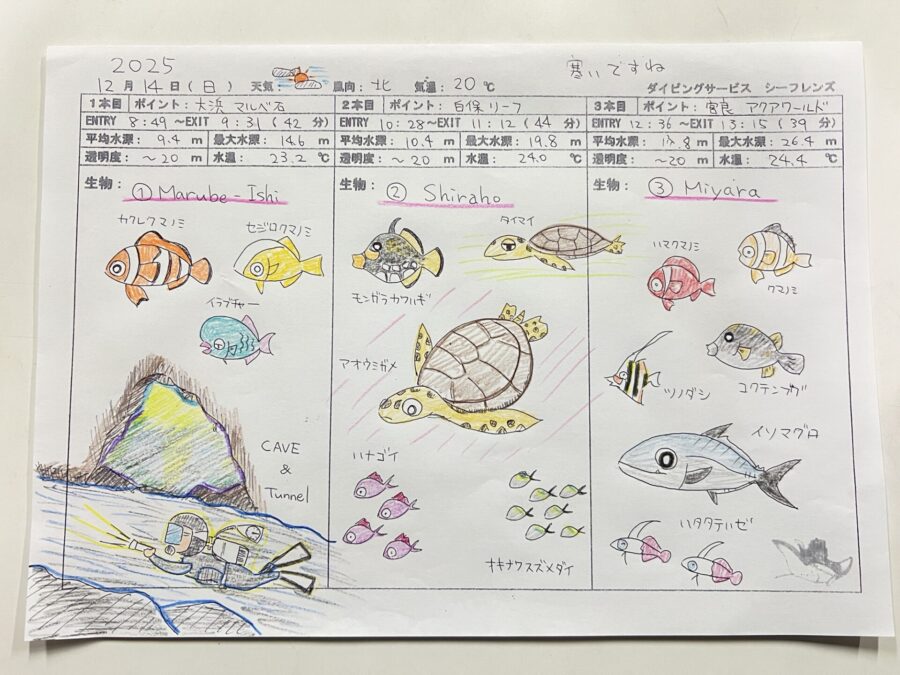 2025
寒いですね
12月 14日(日) 天気: 風向: 北 気温: 20℃ ダイビングサービス シーフレンズ
1本目 ポイント: 大浜 マルベ石
ENTRY 8:49 ~EXIT 9:31 (42 分)
平均水深: 9.4 m 最大水深: 14.6 m
透明度: ~20 m 水温: 23.2 ℃
生物: ① Marube-Ishi
カクレクマノミ
セジロクマノミ
イラブチャー
CAVE
&
Tunnel
2本目 ポイント: 白保リーフ
ENTRY 10:28 ~EXIT 11:12 (44 分)
平均水深: 10.4 m 最大水深: 19.8 m
透明度: ~20 m 水温: 24.0 ℃
生物: ② Shiraho
タイマイ
モンガラカワハギ
アオウミガメ
ハナゴイ
オキナワスズメダイ
3本目 ポイント: 宮良 アクアワールド
ENTRY 12:36 ~EXIT 13:15 (39 分)
平均水深: .8 m 最大水深: 26.4 m
透明度: ~20 m 水温: 24.4 ℃
生物: ③ Miyara
ハマクマノミ
クマノミ
ツノダシ
コクテンフグ
イソマグロ
ハタタテハゼ